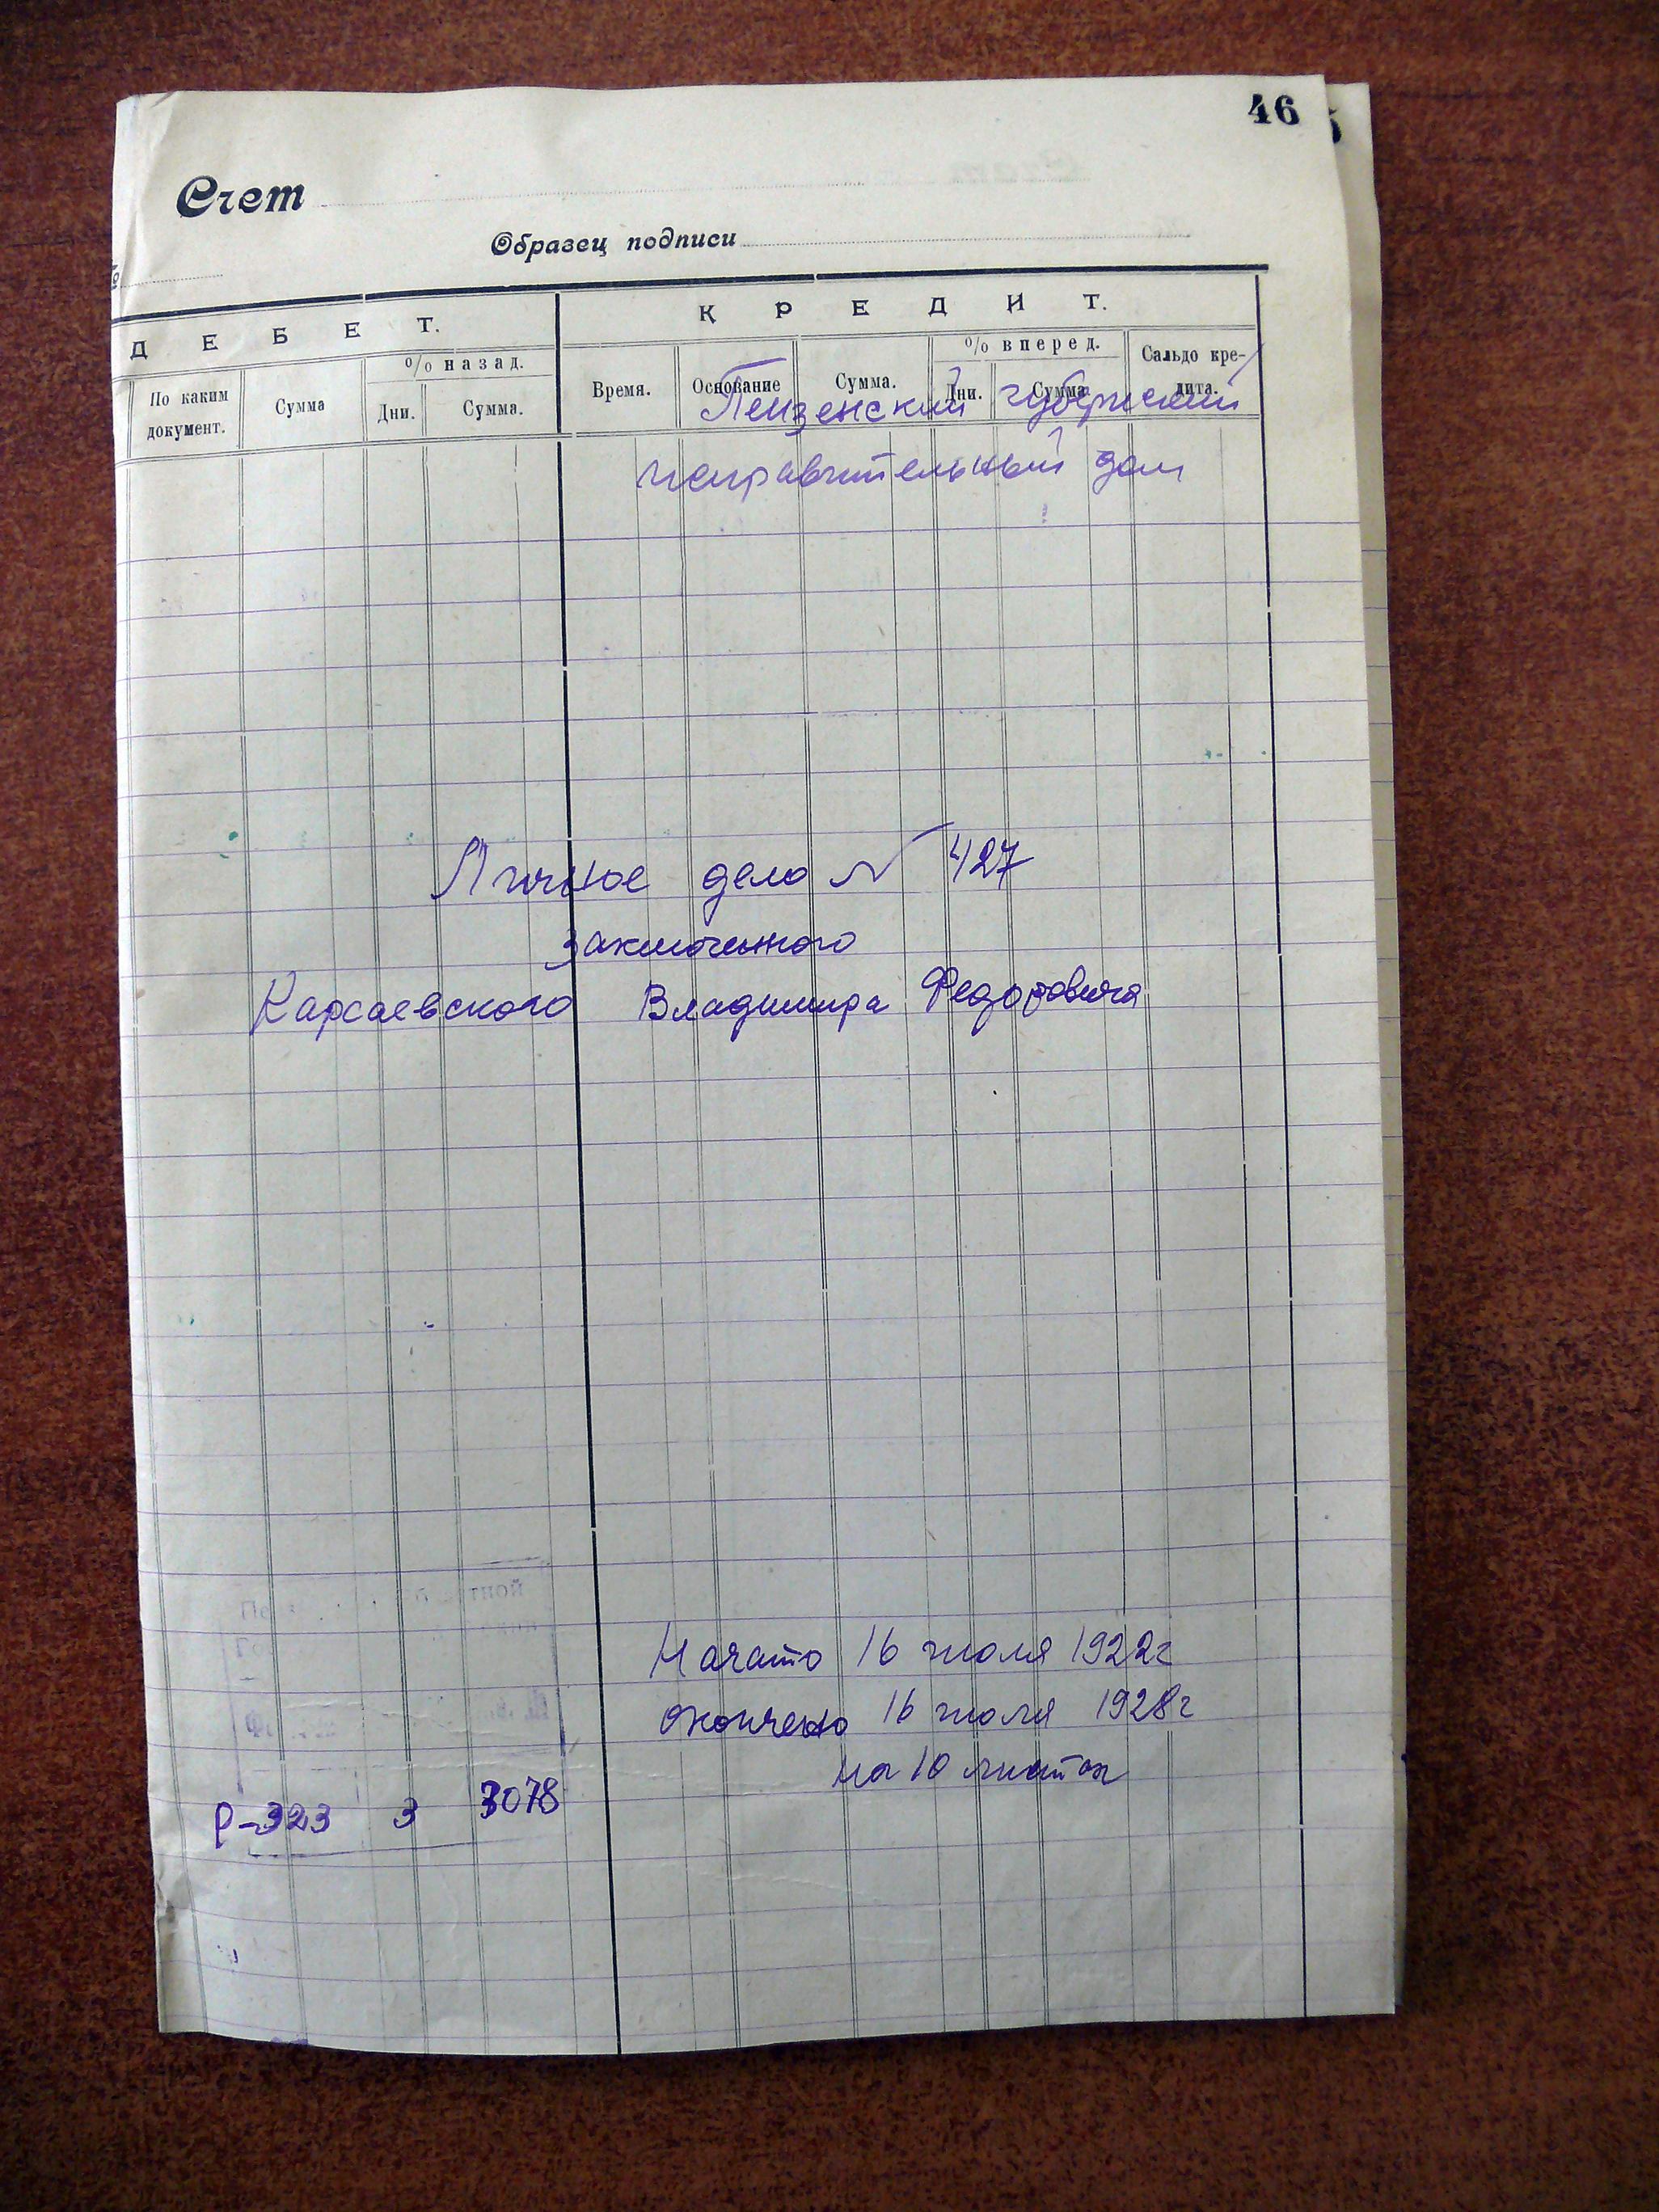 46
Счет
Образец подписи
№
ДЕБЕТ.
КРЕДИТ.
По каким документ.
Сумма
% назад.
Дни.
Сумма.
Время.
Основание
Сумма.
% вперед.
Дни.
Сумма
Сальдо кре-
дита.
Пензенский губернский
исправительный дом
Личное дело № 427
заключенного
Карсаевского Владимира Федоровича
Начато 16 июля 1922г
окончено 16 июля 1928г
на 10 листах
Р-323 3 3078